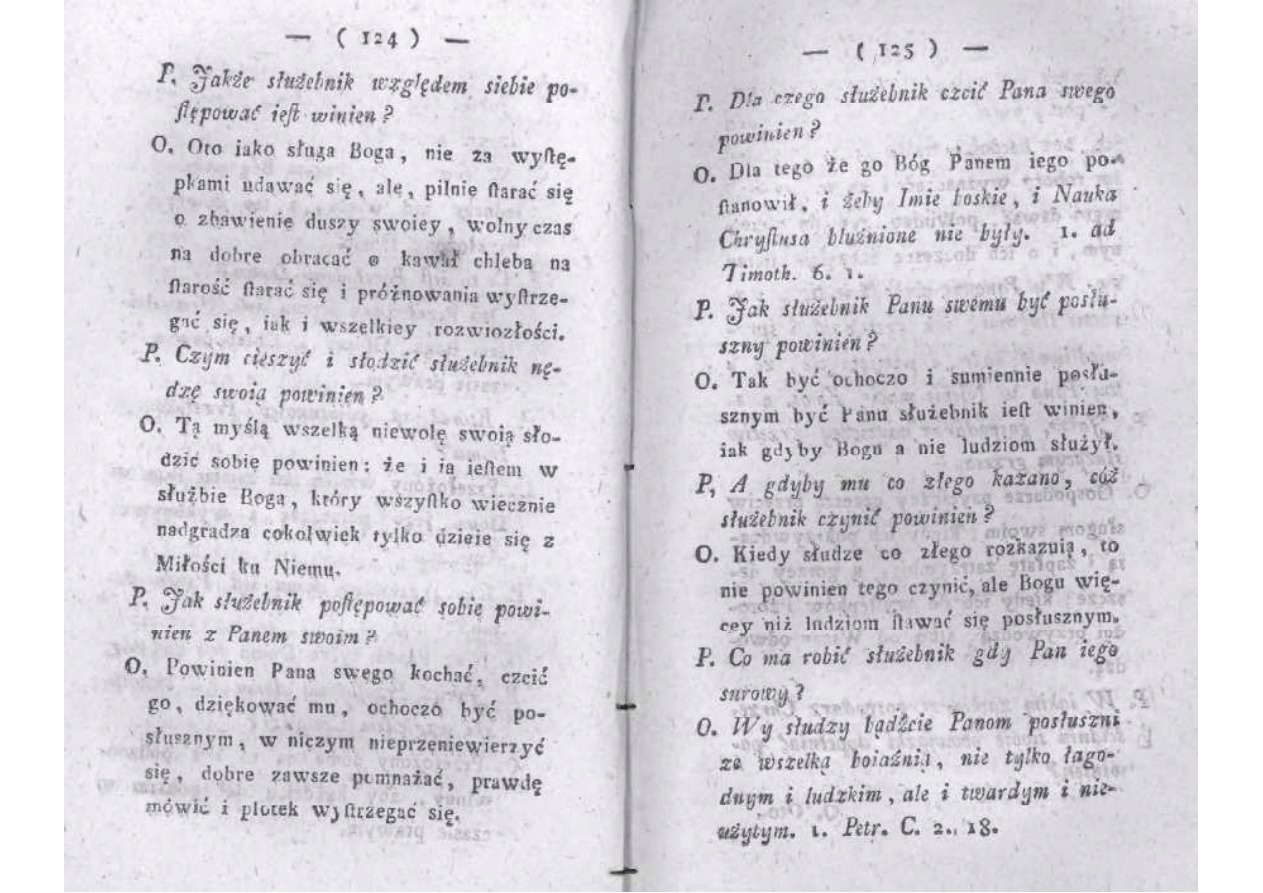 — ( 124 ) —
P. Jakże służebnik względem siebie po-
stępować iest winien?
O. Oto iako sługa Boga, nie za wystę-
pkami udawać się, ale, pilnie starać się
o zbawienie duszy swoiey, wolny czas
na dobre obracać o kawał chleba na
starość starać się i próżnowania wystrze-
gać się, iak i wszelkiey rozwiozłości.
P. Czym cieszyć i słodzić służebnik nę-
dzę swoią powinien?
O. Tą myślą wszelką niewolę swoią sło-
dzić sobie powinien: że i ia iestem w
służbie Boga, który wszystko wiecznie
nadgradza cokolwiek tylko dzieie się z
Miłości ku Niemu.
P. Jak służebnik postępować sobie powi-
nien z Panem swoim?
O. Powinien Pana swego kochać, czcić
go, dziękować mu, ochoczo być po-
słusznym, w niczym nieprzeniewierzyć
się, dobre zawsze pomnażać, prawdę
mówić i plotek wystrzegać się.
— ( 125 ) —
P. Dla czego służebnik czcić Pana swego
powinien?
O. Dla tego że go Bóg Panem iego po-
stanowił, i żeby Imie boskie, i Nauka
Chrystusa bluźnione nie były. 1. ad
Timoth. 6. 1.
P. Jak służebnik Panu swemu być posłu-
szny powinien?
O. Tak być ochoczo i sumiennie posłu-
sznym być Panu służebnik iest winien,
iak gdyby Bogu a nie ludziom służył.
P, A gdyby mu co złego kazano, cóż
służebnik czynić powinien?
O. Kiedy słudze co złego rozkazuią, to
nie powinien tego czynić, ale Bogu wię-
cey niż ludziom stawać się posłusznym.
P. Co ma robić służebnik gdy Pan iego
surowy?
O. Wy słudzy bądźcie Panom posłuszni
ze wszelką boiaźnią, nie tylko łago-
dnym i ludzkim, ale i twardym i nie-
użytym. 1. Petr. C. 2., 18.